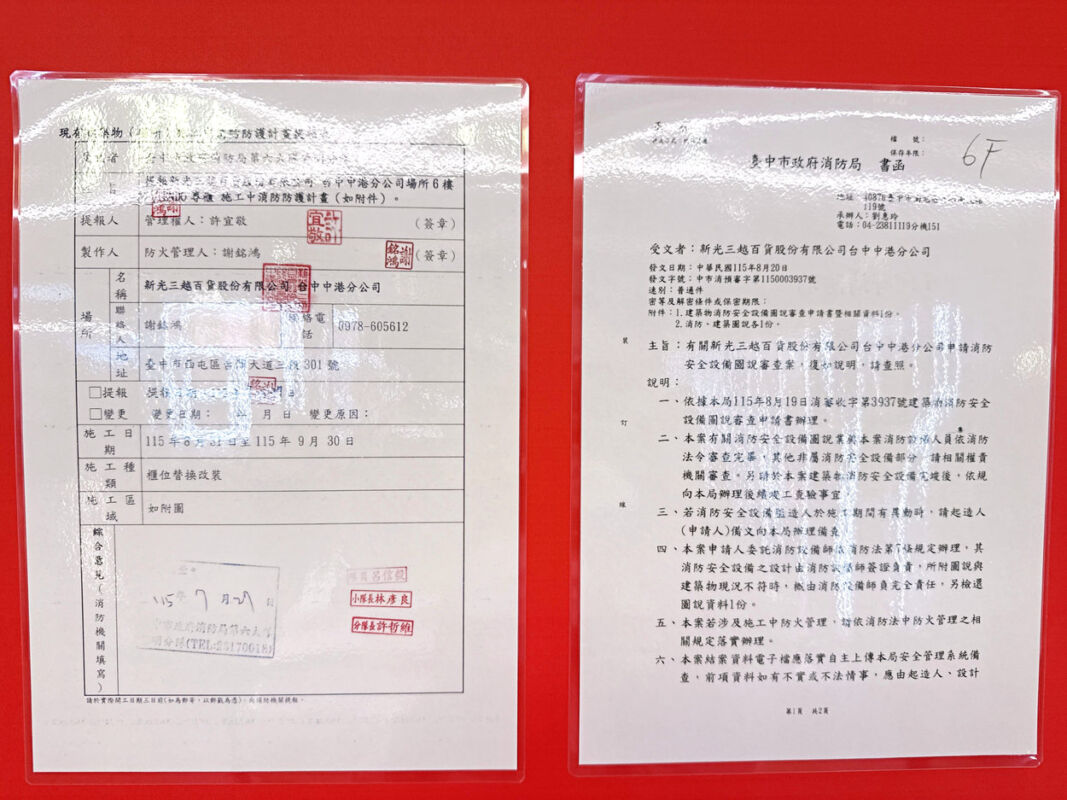 提報人
管理權人：許宜敬
(簽章)
製作人
防火管理人：謝銘鴻
(簽章)
場所
名稱
新光三越百貨股份有限公司 台中中港分公司
聯絡人
謝銘鴻
絡電話
0978-605612
地址
301號
□提報
□變更
變更日期：
年 月 日
變更原因：
施工日期
115年8月31日至115年9月30日
施工種類
櫃位替換改裝
施工區域
如附圖
綜合意見(消防機關填寫)
115年7月27
小隊長林彥良
分隊長許哲維
6F
檔 號：
保存年限：
臺中市政府消防局 書函
119號
承辦人：劉惠玲
電話：04-23811119分機151
受文者：新光三越百貨股份有限公司台中中港分公司
發文日期：中華民國115年8月20日
發文字號：中市消預審字第1150003937號
速別：普通件
密等及解密條件或保密期限：
附件：1.建築物消防安全設備圖說審查申請書暨相關資料1份。
2.消防、建築圖說各1份。
主旨：有關新光三越百貨股份有限公司台中中港分公司申請消防
安全設備圖說審查案，復如說明，請查照。
說明：
一、依據本局115年8月19日消審收字第3937號建築物消防安全
設備圖說審查申請書辦理。
二、本案有關消防安全設備圖說業經本案消防設備人員依消防
法令審查完畢，其他非屬消防安全設備部分，請相關權責
機關審查。另請於本案建築物消防安全設備完竣後，依規
向本局辦理後續竣工查驗事宜。
三、若消防安全設備監造人於施工期間有異動時，請起造人
(申請人)備文向本局辦理備查。
四、本案申請人委託消防設備師依消防法第7條規定辦理，其
消防安全設備之設計由消防設備師簽證負責，所附圖說與
建築物現況不符時，概由消防設備師負完全責任，另檢還
圖說資料1份。
五、本案若涉及施工中防火管理，請依消防法中防火管理之相
關規定落實辦理。
六、本案結案資料電子檔應落實自主上傳本局安全管理系統備
查，前項資料如有不實或不法情事，應由起造人、設計
裝
訂
線
第1頁 共2頁